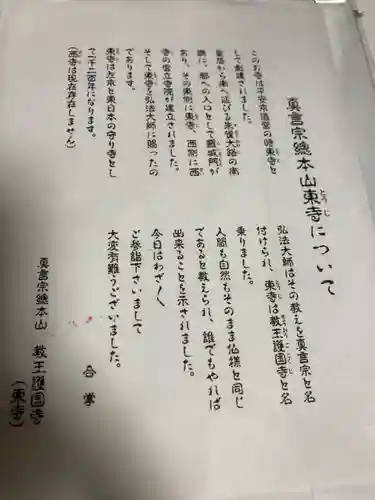 真言宗總本山東寺について
このお寺は平安京造営の時東寺と
して創建されました。
皇居から南へ延びる朱雀大路の南
端に、都への入口として羅城門が
あり、その東側に東寺、西側に西
寺の官立寺院が建立されました。
そして東寺を弘法大師に賜ったの
であります。
東寺は左京と東日本の守り寺とし
て千二百年になります。
(西寺は現在存在しません)
弘法大師はその教えを真言宗と名
付けられ、東寺は教王護国寺と名
乗りました。
人間も自然もそのまま仏様と同じ
であると教えられ、誰でもやれば
出来ることを示されました。
今日はわざ〳〵
ご参詣下さいまして
大変有難うございました。
合掌
真言宗總本山 教王護国寺
(東寺)